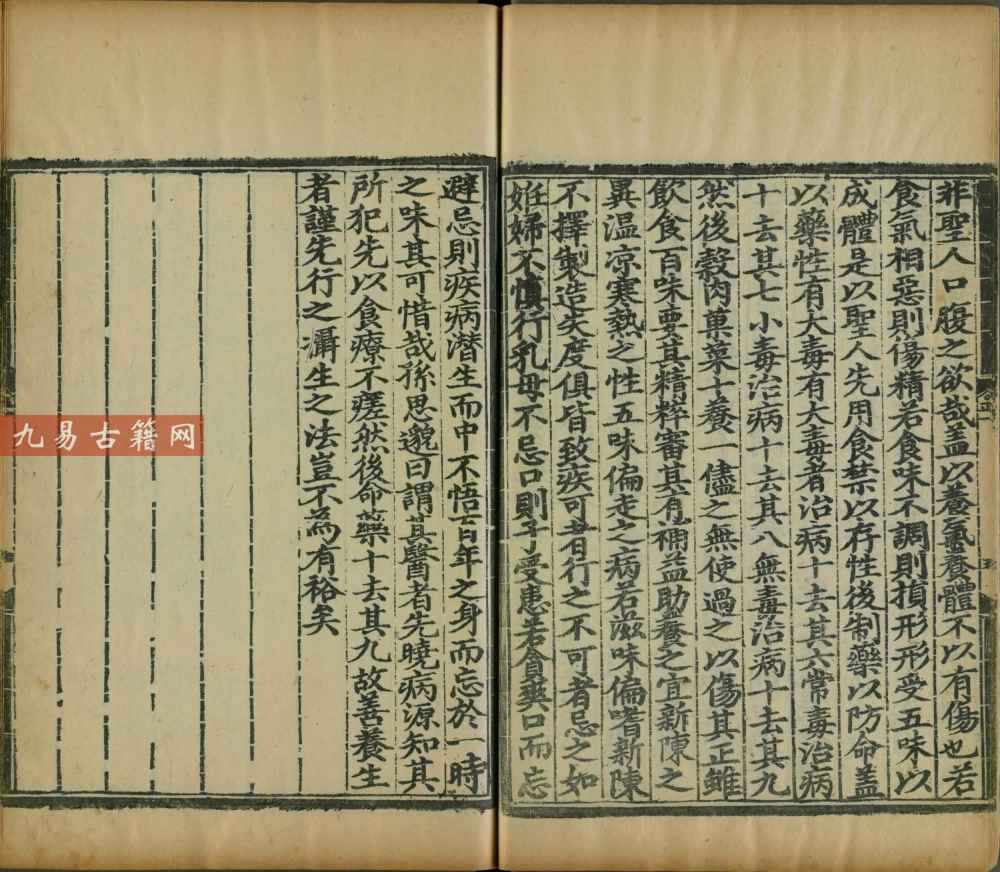 非聖人口腹之欲哉盖以養氣養體不以有傷也若
食氣相惡則傷精若食味不調則損形形受五味以
成體是以聖人先用食禁以存性後制藥以防命盖
以藥性有大毒有大毒者治病十去其六常毒治病
十去其七小毒治病十去其八無毒治病十去其九
然後穀肉菓菜十養一儘之無使過之以傷其正雖
飲食百味要其精粹審其有補益助養之宜新陳之
異温凉寒熱之性五味偏走之病若滋味偏嗜新陳
不擇製造失度俱皆致疾可者行之不可者忌之如
妊婦不慎行乳母不忌口則子受患若貪爽口而忘
避忌則疾病潜生而中不悟百年之身而忘於一時
之味其可惜哉孫思邈曰謂其醫者先曉病源知其
所犯先以食療不瘥然後命藥十去其九故善養生
者謹先行之攝生之法豈不為有裕矣
九易古籍网